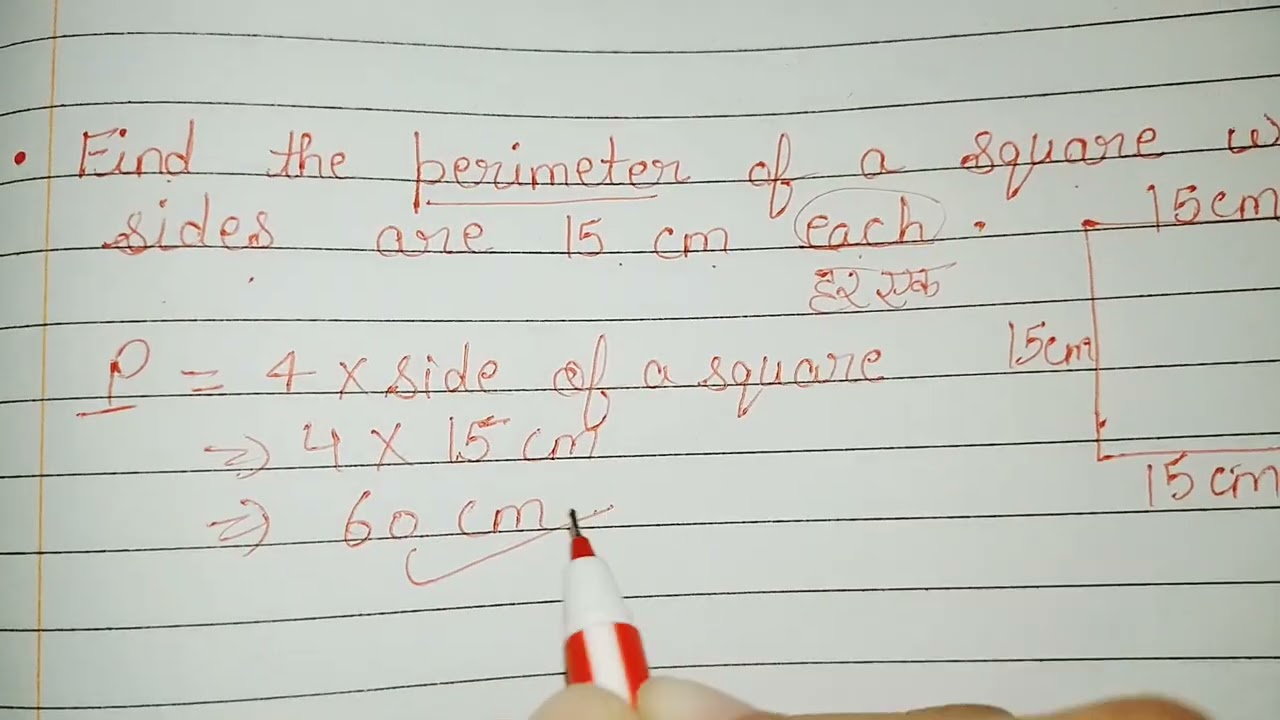 • Find the perimeter of a square w
sides are 15 cm each.
हर एक
15cm
15cm
15cm
P = 4 × side of a square
⇒ 4 × 15 cm
⇒ 60 cm